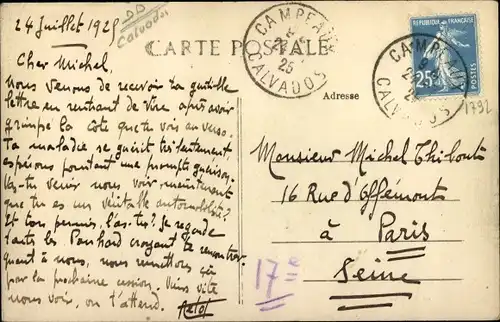 24 Juillet 1925
DD
Calvados
CARTE POSTALE
CAMPEAUX
25
CALVADOS
REPUBLIQUE FRANÇAISE
25c
POSTES
CAMPEAUX
CALVADOS
1792
Adresse
Cher Michel,
Nous venons de recevoir ta gentille
lettre en rentrant de Vire après avoir
grimpé la côte que tu vois au verso.
Ta maladie se guérit très lentement,
espérons pourtant une prompte guérison.
Vas-tu venir nous voir, maintenant
que tu es un véritable automobiliste?
Et ton permis, l'as-tu? Je regarde
toutes les Panhard croyant te rencontrer.
Quant à nous, nous remettons ça
pour la prochaine session. Viens vite
nous voir, on t'attend.
Monsieur Michel Thibout
16 Rue d'Offémont
à Paris
Seine
17e